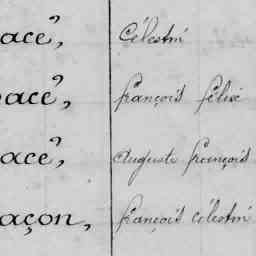 acé, Célestin
acé, françois félix
acé, Auguste françois
açon, françois célestin